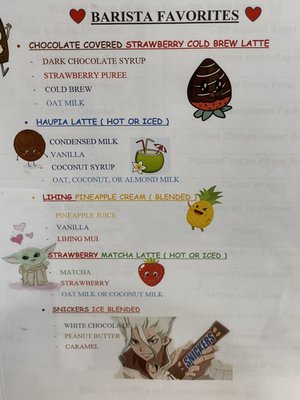 BARISTA FAVORITES
• CHOCOLATE COVERED STRAWBERRY COLD BREW LATTE
- DARK CHOCOLATE SYRUP
- STRAWBERRY PUREE
- COLD BREW
- OAT MILK
• HAUPIA LATTE ( HOT OR ICED )
CONDENSED MILK
VANILLA
- COCONUT SYRUP
- OAT, COCONUT, OR ALMOND MILK
• LIHING PINEAPPLE CREAM ( BLENDED )
- PINEAPPLE JUICE
- VANILLA
- LIHING MUI
STRAWBERRY MATCHA LATTE ( HOT OR ICED )
- MATCHA
- STRAWBERRY
- OAT MILK OR COCONUT MILK
• SNICKERS ICE BLENDED
- WHITE CHOCOLATE
- PEANUT BUTTER
- CARAMEL
SNICKERS